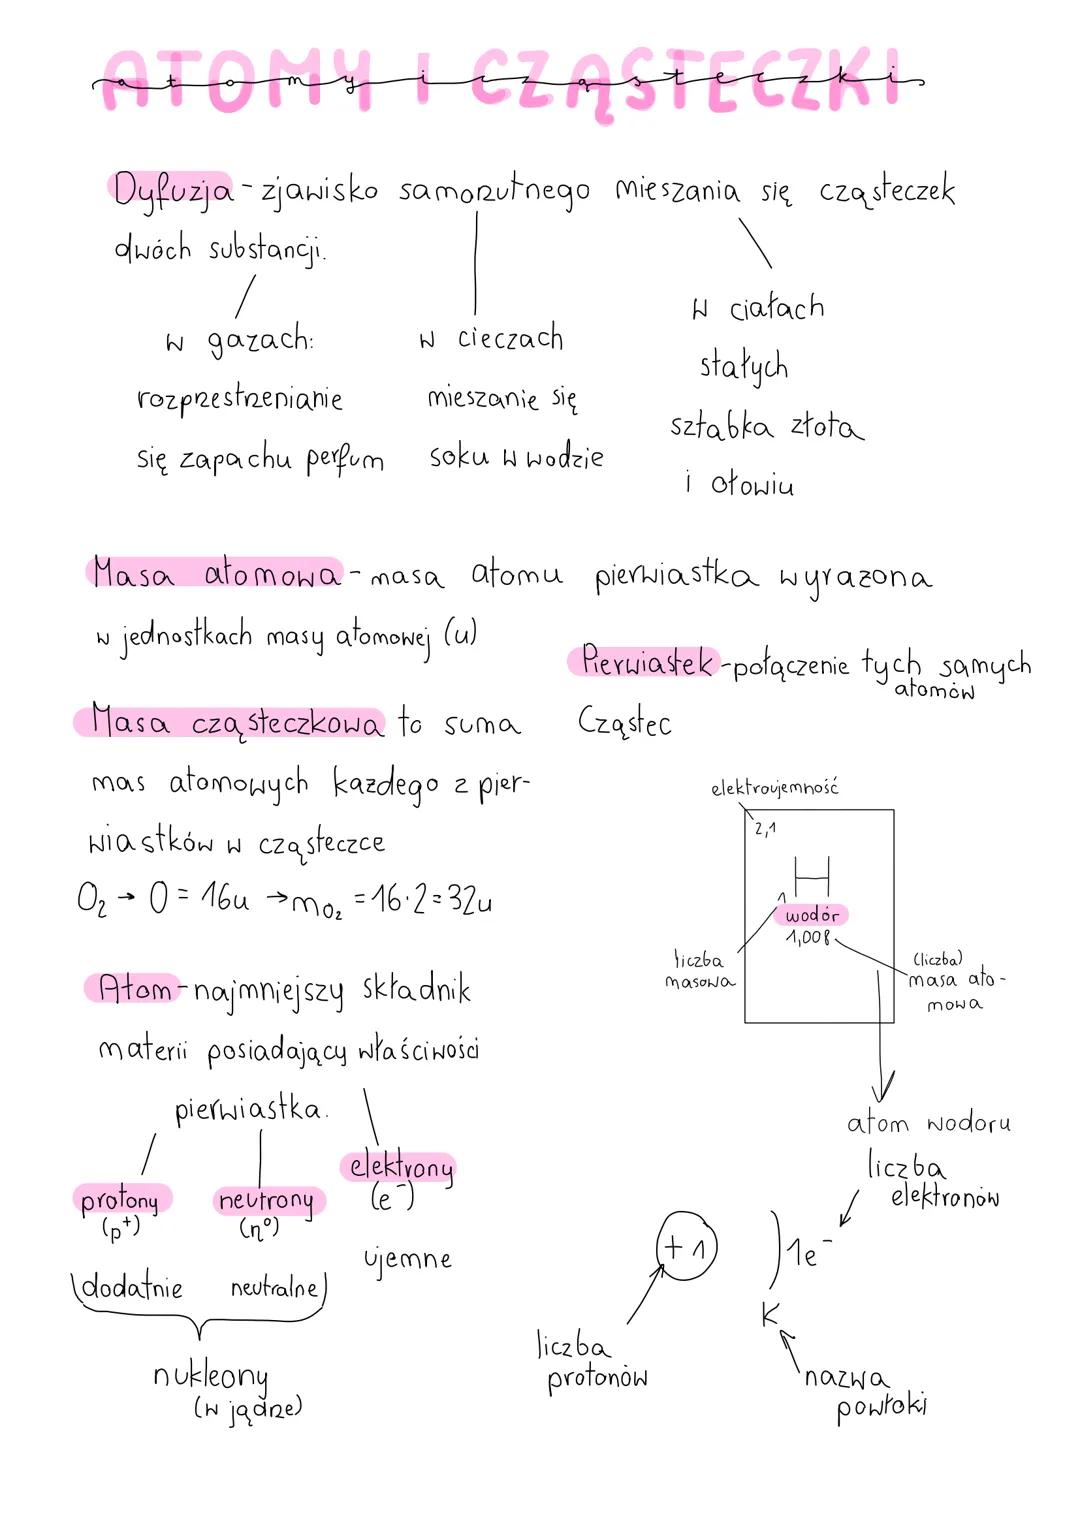 ATOMY I CZĄSTECZKI
atomy i cząsteczki
Dyfuzja - zjawisko samorzutnego mieszania się cząsteczek
dwóch substancji.
w gazach:
rozprzestrzenianie
się zapachu perfum
w cieczach
mieszanie się
soku w wodzie
w ciałach
stałych
sztabka złota
i ołowiu
Masa atomowa - masa atomu pierwiastka wyrazona
w jednostkach masy atomowej (u)
Masa cząsteczkowa to suma
mas atomowych kazdego z pier-
wiastków w cząsteczce
O₂ → O = 16u → mo₂ = 16·2=32u
Pierwiastek - połączenie tych samych
atomów
Cząstec
elektroujemność
2,1
H
1
wodór
1,008
liczba
masowa
(liczba)
masa ato-
mowa
Atom - najmniejszy składnik
materii posiadający właściwości
pierwiastka.
protony
(p⁺)
dodatnie
neutrony
(n⁰)
neutralne
elektrony
(e⁻)
ujemne
nukleony
(w jądrze)
atom wodoru
liczba
elektronów
+1
1e⁻
K
liczba
protonów
nazwa
powłoki